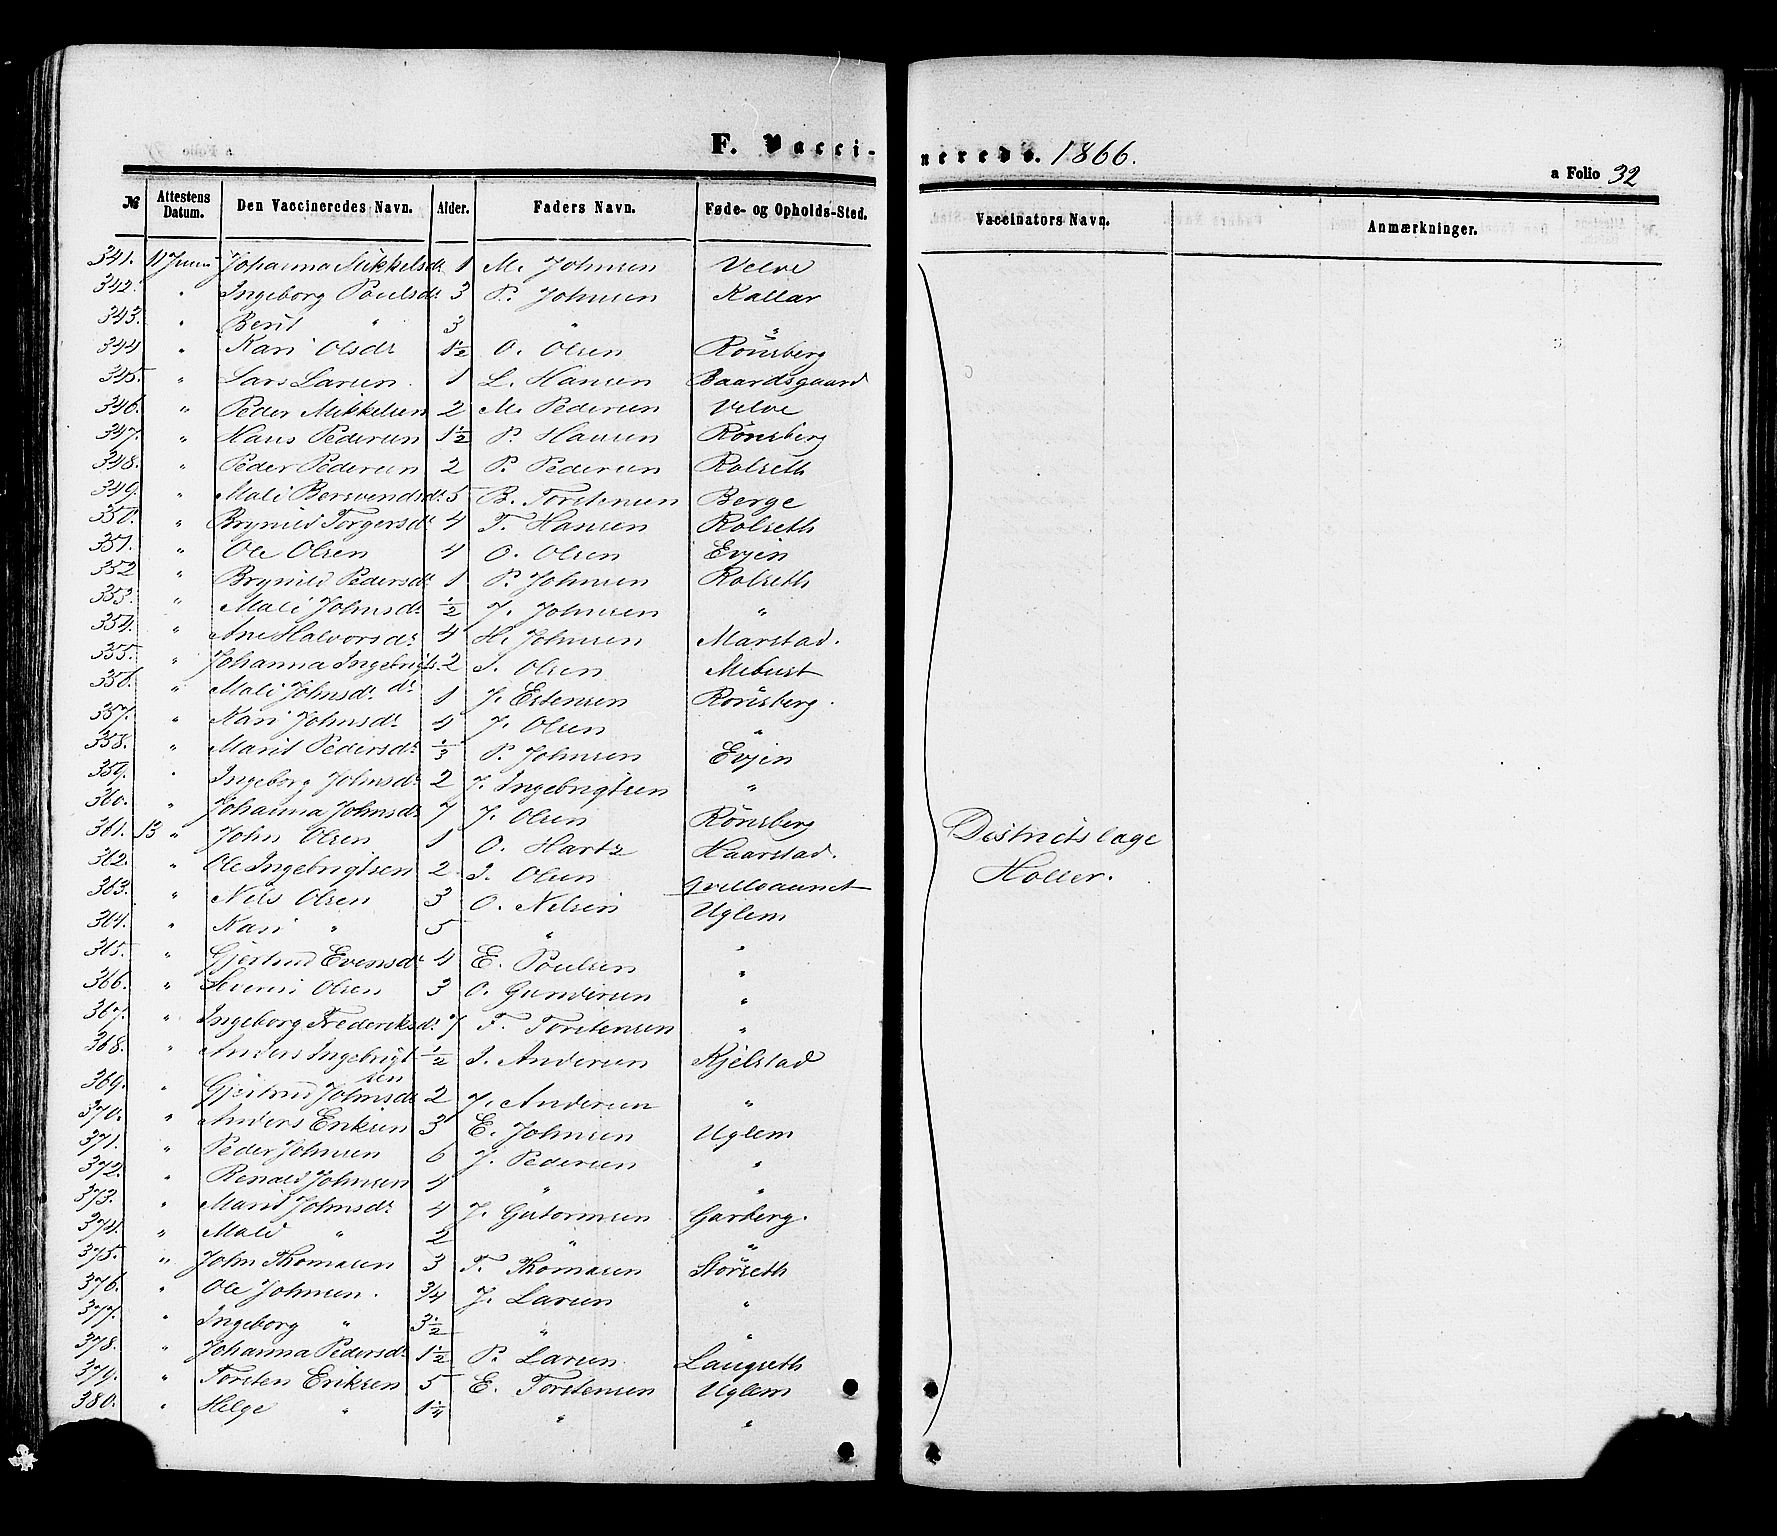 F. Vaccinerede. 1866.
a Folio 32
№ Attestens Datum. Den Vaccineredes Navn. Alder. Faders Navn. Føde- og Opholds-Sted. Vaccinators Navn. Anmærkninger.
341. 11 Juni Johanna Mikkelsdr 1 M. Johnsen Velve
342. " Ingeborg Poulsdr 3 P. Johnsen Kallar
343. " Berit " 3 " "
344 " Kari Olsdr 1½ O. Olsen Rönsberg
345. " Lars Larsen. 1 L. Hansen Baardsgaard
346. " Peder Mikkelsen 2 M. Pedersen Velve
347. " Hans Pedersen 1½ P. Hansen Rönsberg
348. " Peder Pedersen 2 P. Pedersen Rolseth
349. " Mali Bersvendsdr 5 B. Torstensen Berge
350. " Brynild Torgersdr 4 T. Hansen Rolseth
351. " Ole Olsen 4 O. Olsen Evjen
352 " Brynild Pedersdr 1 P. Johnsen Rolseth
353. " Mali Johnsdr ½ J. Johnsen "
354. " Ane Halvorsdr 4 H. Johnsen Marstad.
355. " Johanna Ingebrigts.dr 2 I. Olsen Mebust
356. " Mali Johnsdr 1 J. Estensen Rönsberg.
357. " Kari Johnsdr 4 J. Olsen "
358. " Marit Pedersdr ⅓ P. Johnsen Evjen
359. " Ingeborg Johnsdr 2 J. Ingebrigtsen "
360. " Johanna Johnsdr 7 J. Olsen Rönsberg
361. 13 " John Olsen 1 O. Hartz Haarstad.
362. " Ole Ingebrigtsen 2 I. Olsen
363. " Nils Olsen 3 O. Nilsen Uglem
364. " Kari " 5 " "
365. " Gjertrud Evensdr 4 E. Poulsen "
366. " Olsen 3 O. Gundersen "
367. " Ingeborg Frederiksdr 7 F. Torstensen "
368. " Anders Ingebrigtsen ½ I. Andersen Kjelstad
369. " Gjertrud Johnsdr 2 J. Andersen "
370. " Anders Eriksen 3 E. Johnsen Uglem
371. " Peder Johnsen 6 J. Pedersen "
372. " Renald Johnsen 4 " "
373. " Marit Johnsdr 4 J. Gutormsen Garberg.
374. " Mali " 2 " "
375. " John Thomasen 3 T. Thomasen Störseth
376. " Ole Johnsen. ¾ J. Larsen "
377. " Ingeborg " 3½ " "
378. " Johanna Pedersdr 1½ P. Larsen Langseth
379. " Torsten Eriksen 5 E. Torstensen Uglem
380. " Helge " 1¼ " "
Districtslæge
Holler.